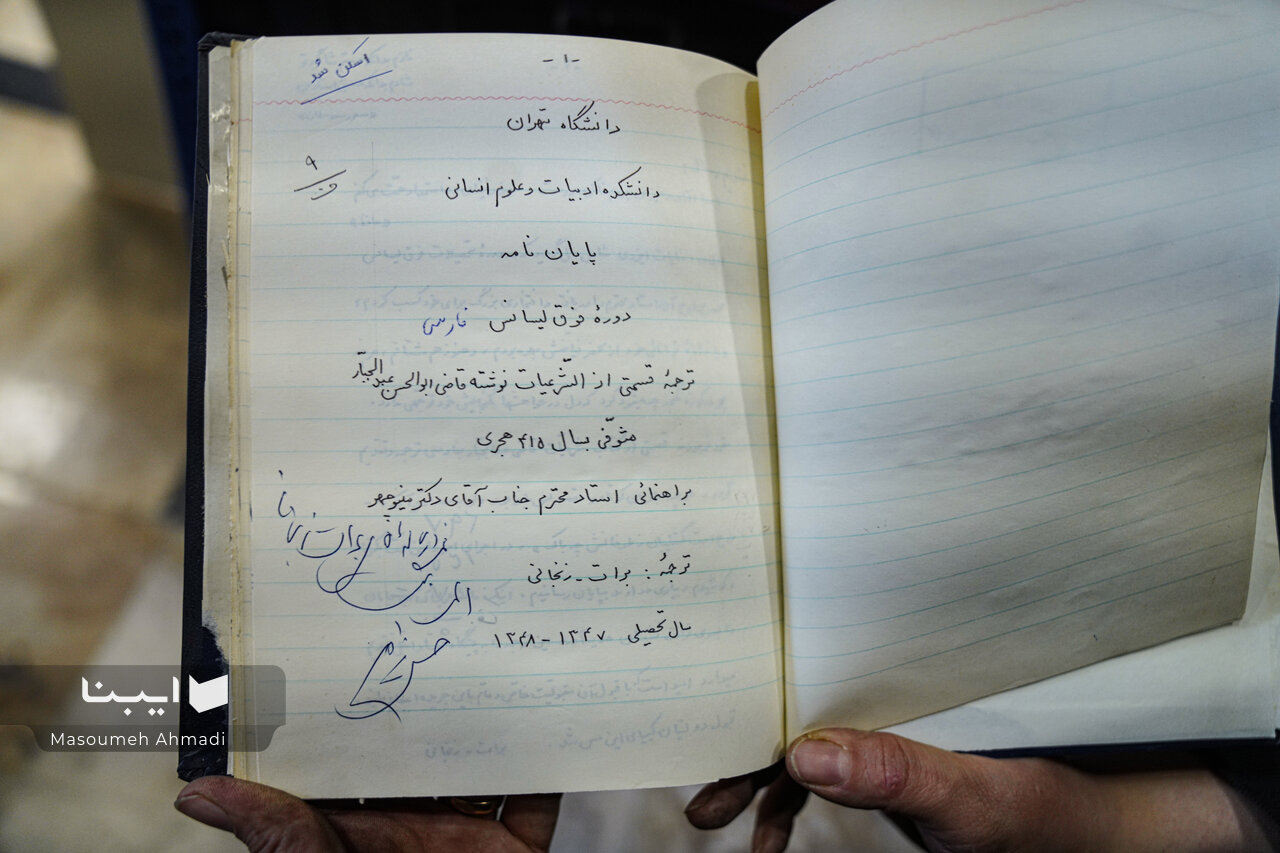 اسکن شد
-۱-
دانشگاه تهران
۹
دانشکده ادبیات و علوم انسانی
پایان نامه
دورهٔ فوق لیسانس فارسی
ترجمهٔ قسمتی از الشّرعیات نوشته قاضی ابوالحسن عبدالجبّار
متوفّی بسال ۴۱۵ هجری
براهنمائی استاد محترم جناب آقای دکتر منوچهر
ترجمهٔ : برات - زنجانی
سال تحصیلی ۱۳۴۷ - ۱۳۴۸
ایبنا
Masoumeh Ahmadi